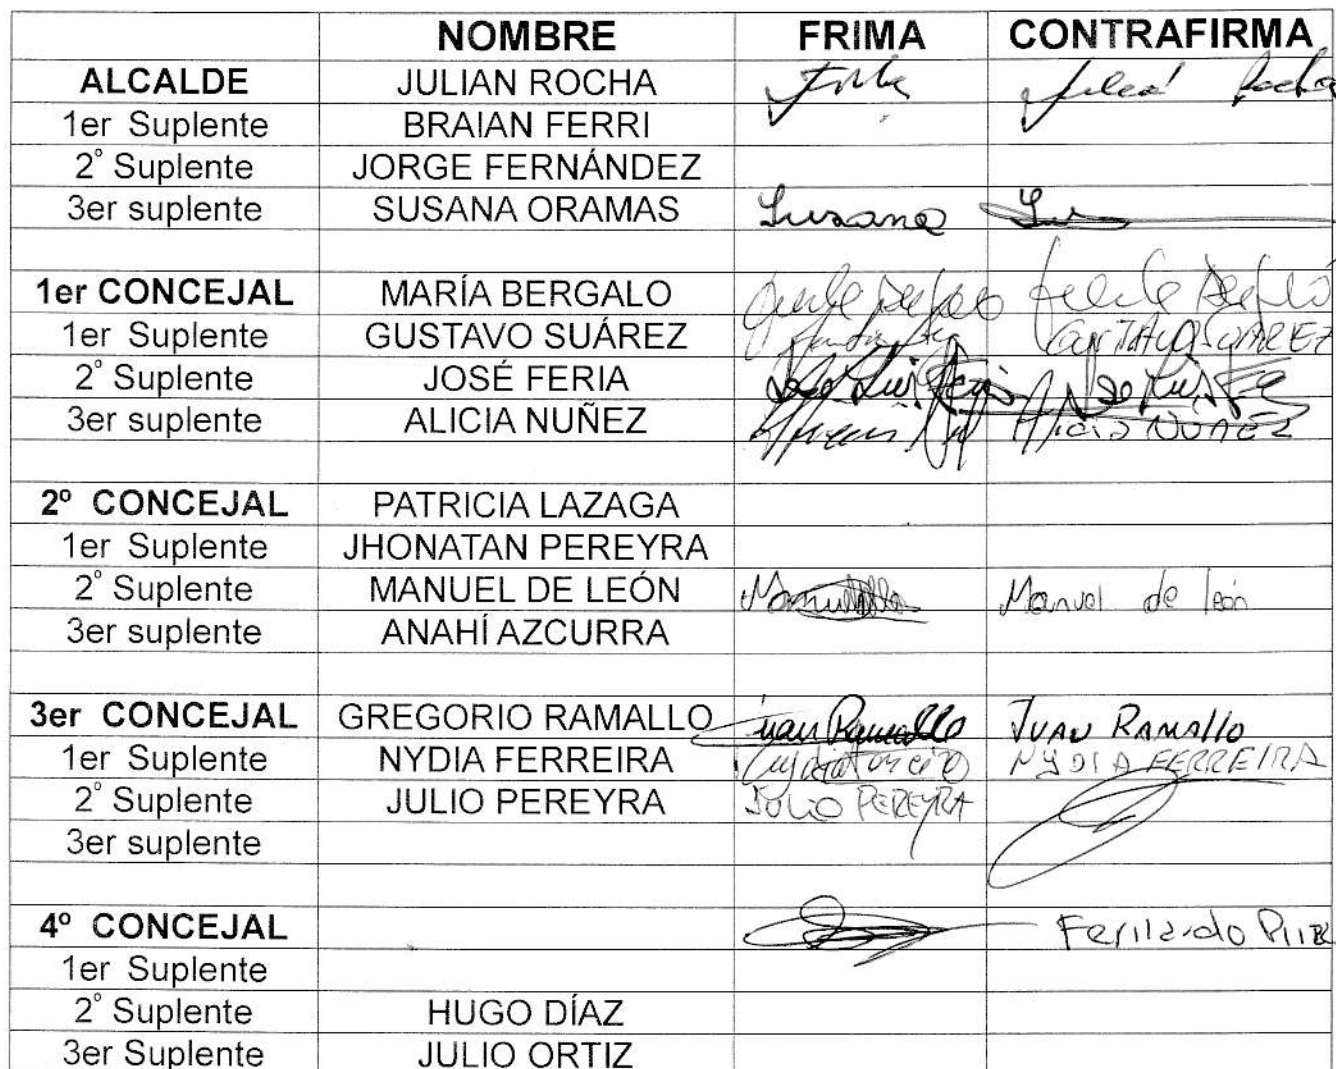 NOMBRE FRIMA CONTRAFIRMA
ALCALDE JULIAN ROCHA Rocha
1er Suplente BRAIAN FERRI
2° Suplente JORGE FERNÁNDEZ
3er suplente SUSANA ORAMAS Susana
1er CONCEJAL MARÍA BERGALO
1er Suplente GUSTAVO SUÁREZ SUAREZ
2° Suplente JOSÉ FERIA José Luis
3er suplente ALICIA NUÑEZ Alicia NUñEZ
2º CONCEJAL PATRICIA LAZAGA
1er Suplente JHONATAN PEREYRA
2° Suplente MANUEL DE LEÓN Manuel de león
3er suplente ANAHÍ AZCURRA
3er CONCEJAL GREGORIO RAMALLO Juan Ramallo JUAN RAMAllO
1er Suplente NYDIA FERREIRA NYDIA FERREIRA
2° Suplente JULIO PEREYRA JULIO PEREYRA
3er suplente
4º CONCEJAL
1er Suplente
2° Suplente HUGO DÍAZ
3er Suplente JULIO ORTIZ